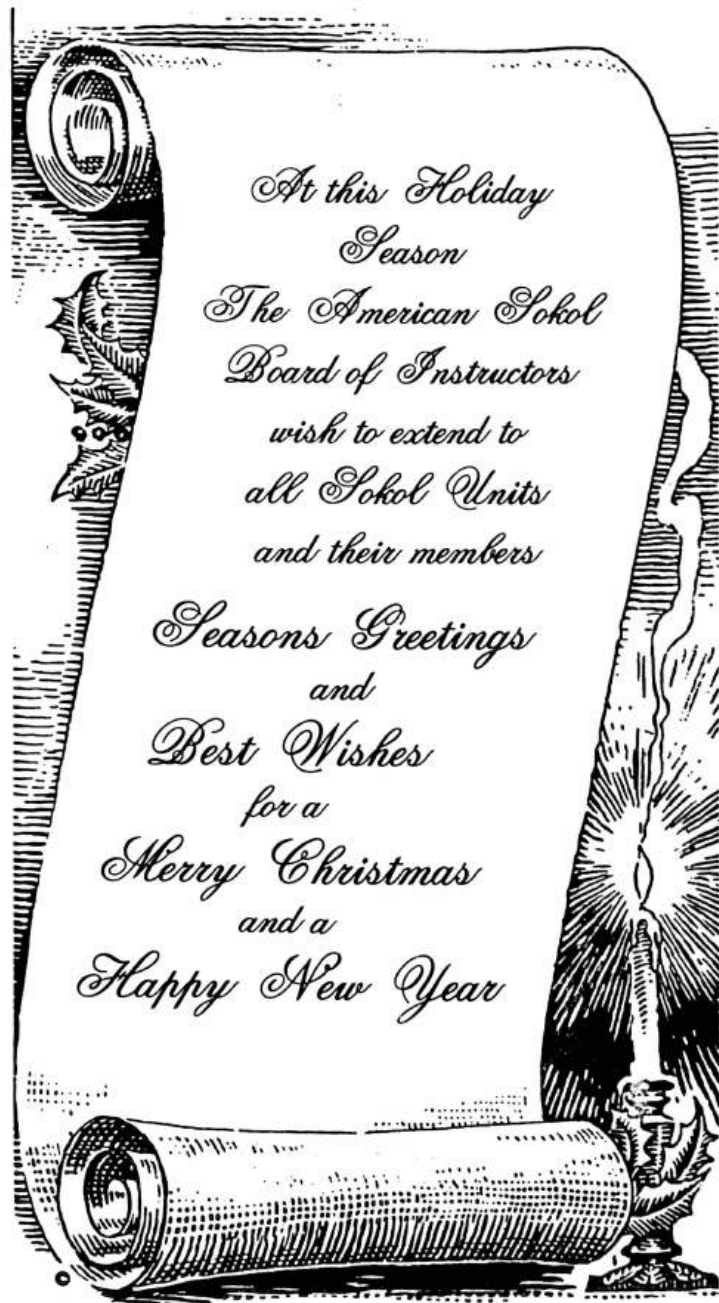 At this Holiday
Season
The American Sokol
Board of Instructors
wish to extend to
all Sokol Units
and their members
Seasons Greetings
and
Best Wishes
for a
Merry Christmas
and a
Happy New Year